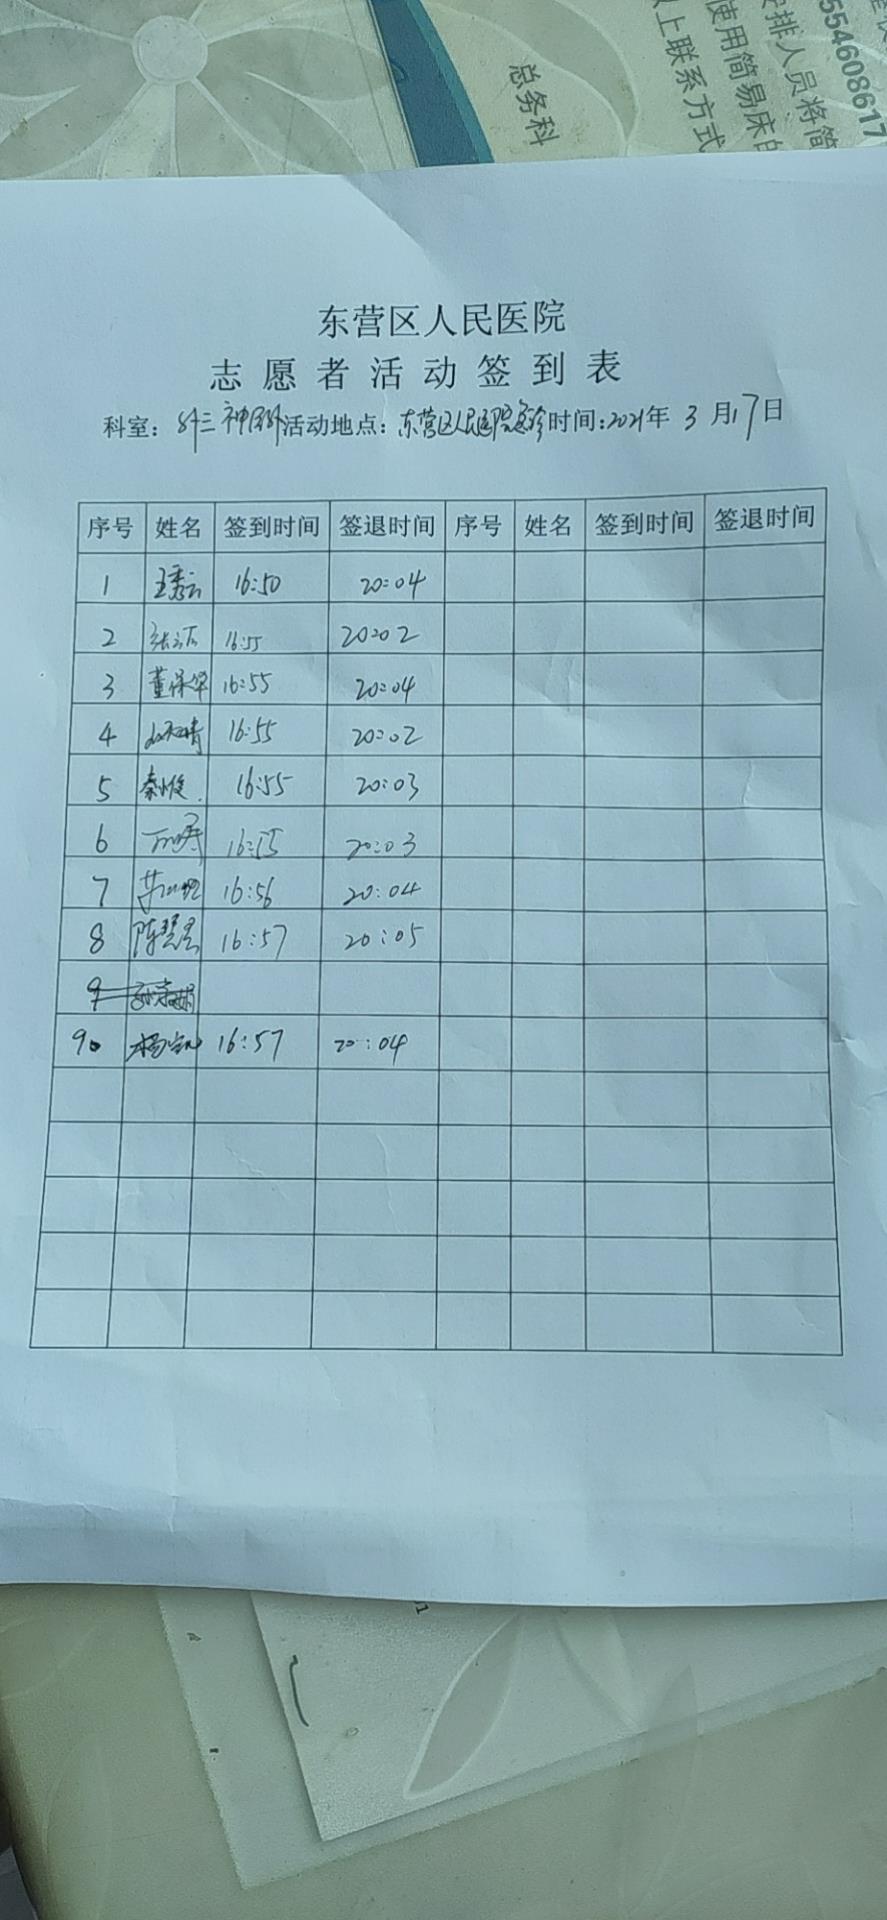 总务科
以上联系方式
使用简易床的
安排人员将简
554608617
东营区人民医院
志愿者活动签到表
科室：外三神外 活动地点：东营区人民医院急诊 时间：2021年 3 月17日
序号 姓名 签到时间 签退时间 序号 姓名 签到时间 签退时间
1 王秀云 16:50 20:04
2 16:55 20:02
3 董保华 16:55 20:04
4 16:55 20:02
5 秦俊 16:55 20:03
6 16:55 20:03
7 16:56 20:04
8 陈慧 16:57 20:05
9
9 杨 16:57 20:04